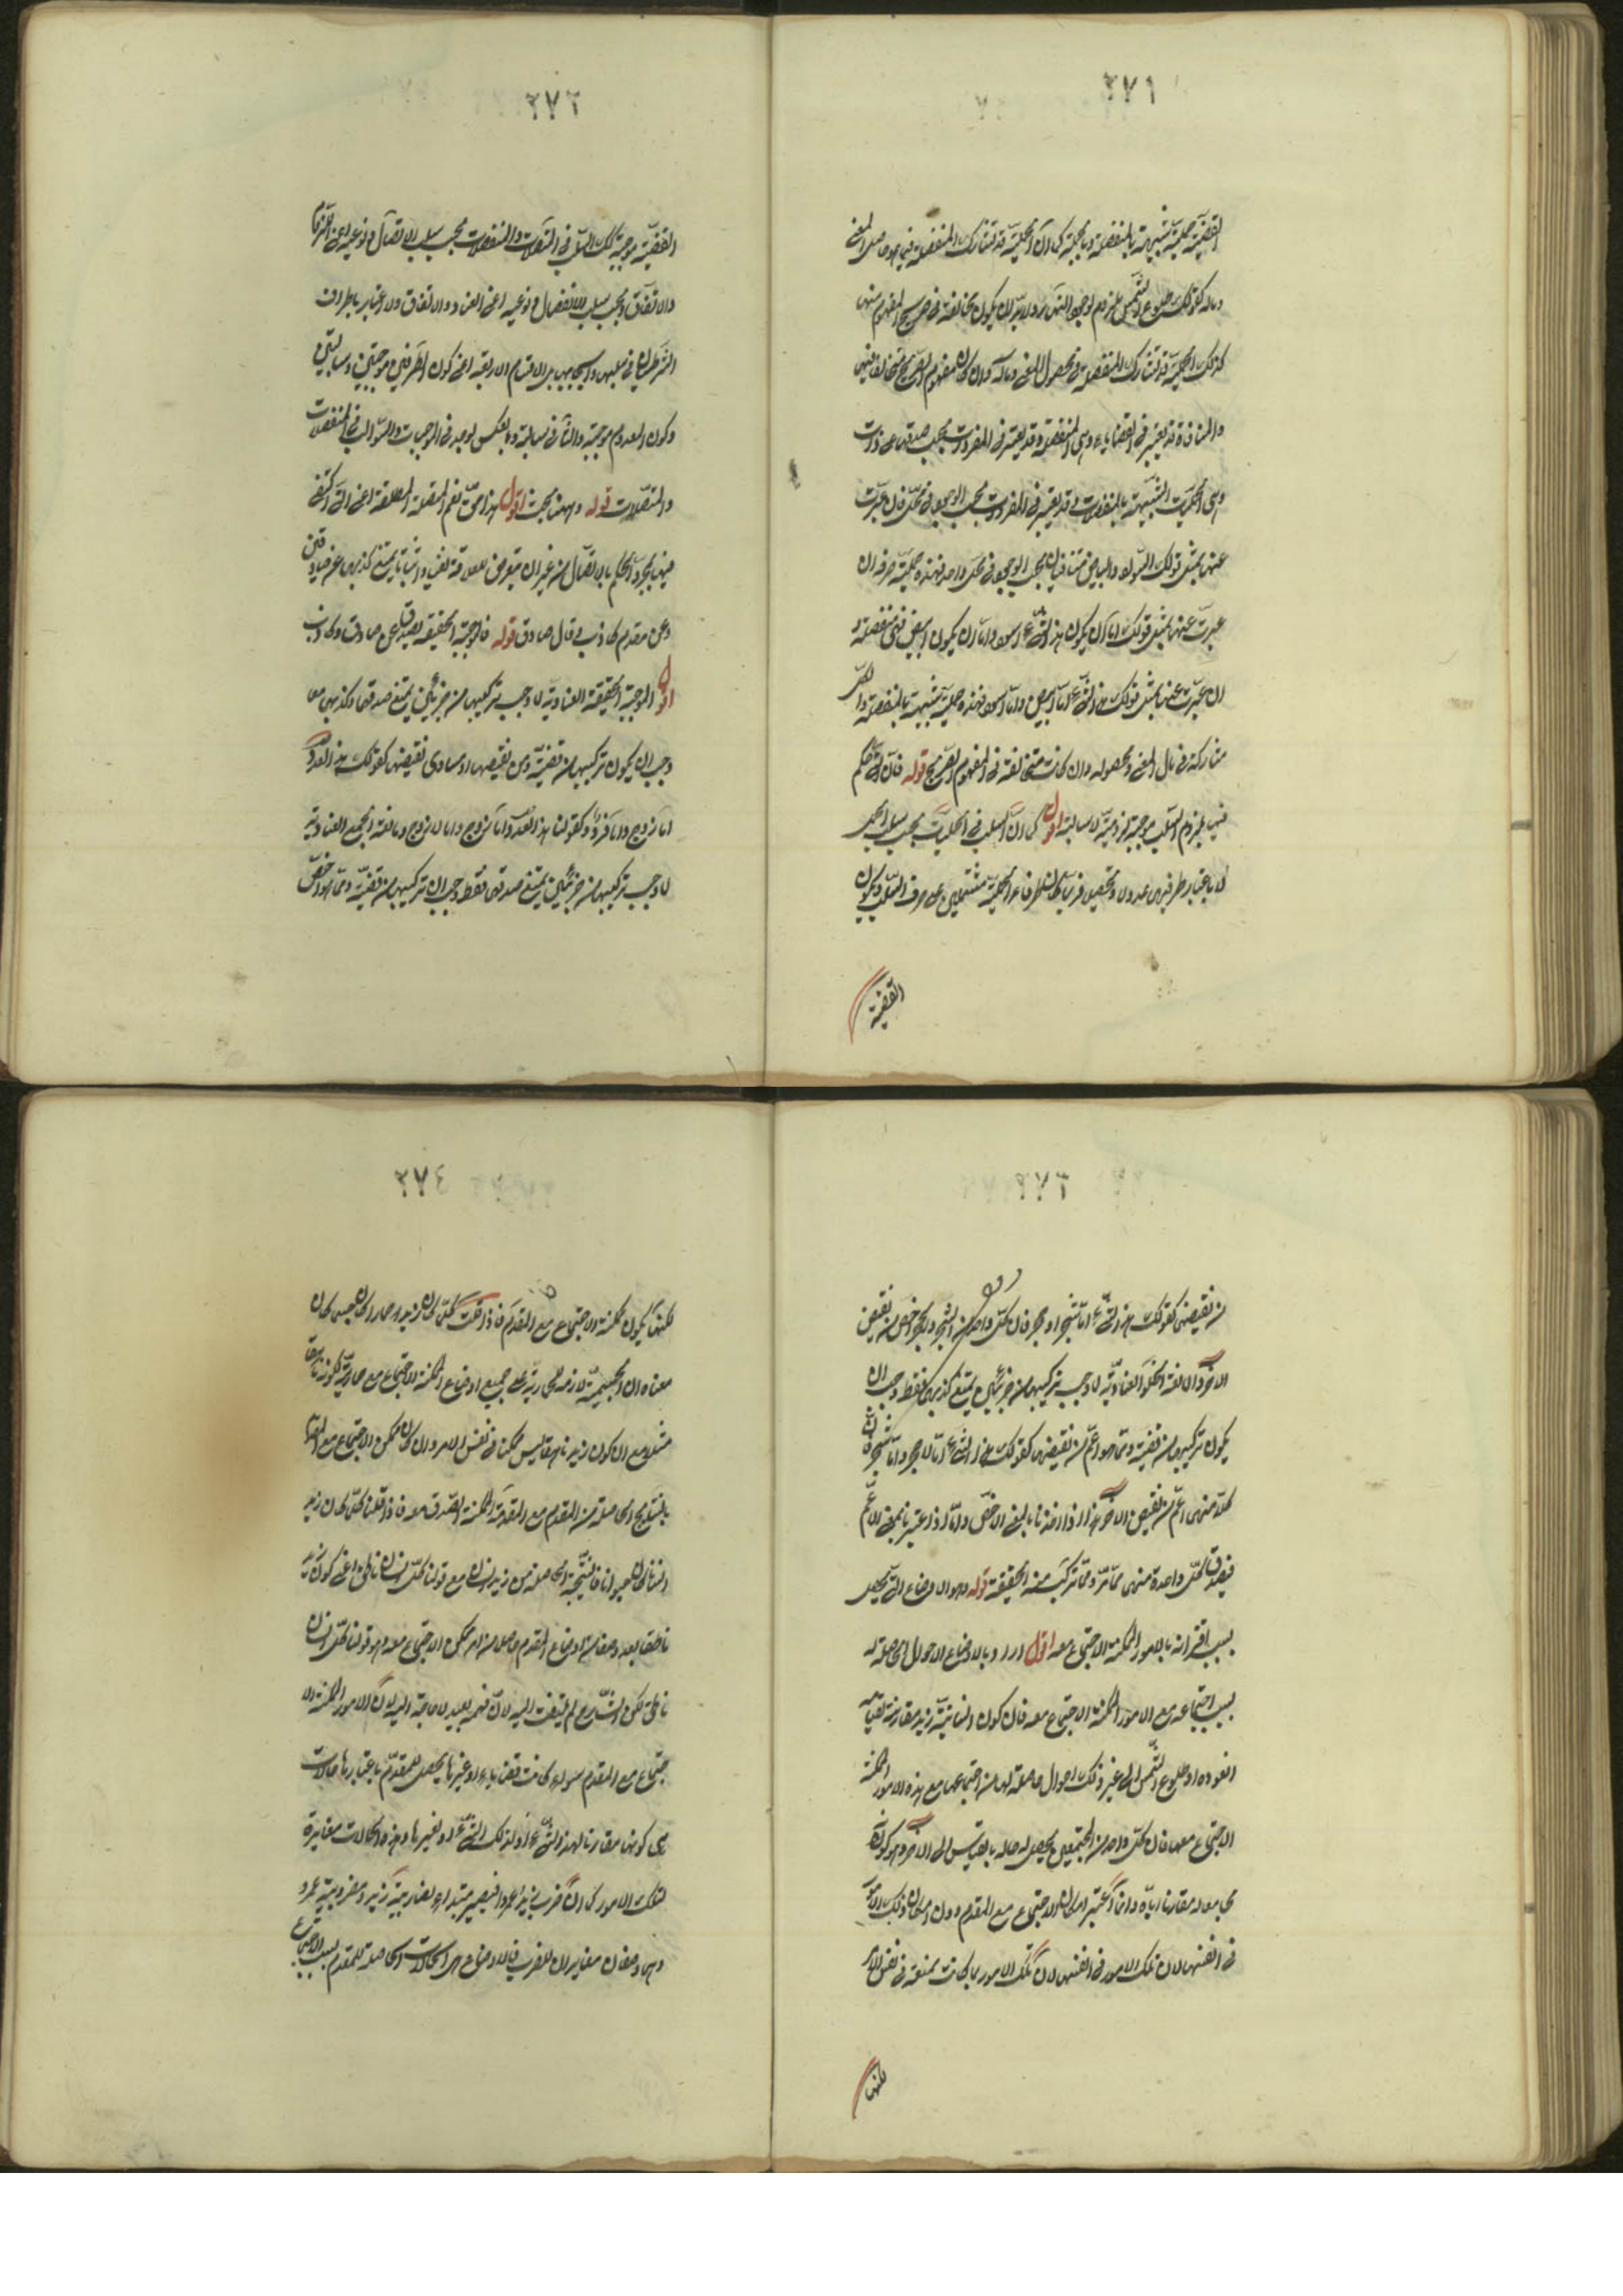 ٢٧١
القضية حملية شبيهة بالمنفصلة وبالجملة كما ان الحملية قد تشارك المنفصلة فيما هو حاصل المعنى
وماله كقولك طلوع الشمس ملزوم لوجود النهار ولا بد ان يكون مخالفة في صريح المفهوم منها
كذلك الحملية قد تشارك المنفصلة في محصول المعنى وماله وان كان مفهوم الصريح متخالفا فيها
والمنافاة قد يعتبر في القضايا وهي المنفصلة وقد يعتبر في المفردات بحسب صدقها على ذات
وهي الحمليات الشبيهة بالمنفصلات وقد يعتبر في المفردات بحسب الوجود في محل فان عبرت
عنها بمثل قولك السواد والبياض متنافيان بحسب الوجود في محل واحد فهذه حملية صرفة وان
عبرت عنها بمثل قولك اما ان يكون هذا الشئ اسود واما ان يكون ابيض فهي منفصلة و
ان عبرت عنها بمثل قولك هذا الشئ اما ابيض واما اسود فهذه حملية شبيهة بالمنفصلة والكل
متشاركة في مال المعنى ومحصوله وان كانت متخالفة في المفهوم الصريح قوله فان التي حكم
فيها بلزوم السلب موجبة لزومية لا سالبة اقول كما ان السلب في الحمليات بحسب سلب الحمل
لا باعتبار طرفيها عدولا وتحصيلا فربما كان طرفا الحملية مشتملين على حرف السلب ويكون
القضية
٢٧٢
القضية موجبة كذلك السلب في المتصلات والمنفصلات بحسب سلب الاتصال ونوعيه اعني اللزوم
والاتفاق وبحسب سلب الانفصال ونوعيه اعني العناد والاتفاق ولا اعتبار باطراف
الشرطيات في سلبها وايجابها بل الاقسام الاربعة اعني كون الطرفين موجبتين وسالبتين
وكون المقدم موجبة والتالي سالبة وبالعكس يوجد في الموجبات والسوالب في المنفصلات
والمتصلات قوله وههنا بحث اقول هذا حق نعم المتصلة المطلقة اعني التي اكتفي
فيها بمجرد الحكم بالاتصال من غير ان يتعرض للعلاقة نفيا واثباتا يمتنع كذبها عن صادقين
وعن مقدم كاذب وتال صادق قوله فالموجبة الحقيقية تصدق عن صادق وكاذب
اقول الموجبة الحقيقية العنادية لما وجب تركيبها من جزئين يمتنع صدقهما وكذبهما معا
وجب ان يكون تركيبها من قضية ومن نقيضها او مساوي نقيضها كقولك هذا العدد
اما زوج واما فرد وكقولنا هذا العدد اما زوج واما لا زوج ومانعة الجمع العنادية
لما وجب تركيبها من جزئين يمتنع صدقهما فقط وجب ان تركيبها من قضية ومما هو اخص
٢٧٣
من نقيضها كقولك هذا الشئ اما شجر او حجر فان كل واحد من الشجر والحجر اخص من نقيض
الاخر ومانعة الخلو العنادية لما وجب تركيبها من جزئين يمتنع كذبهما فقط وجب ان
يكون تركيبها من قضية ومما هو اعم من نقيضها كقولك هذا الشئ اما لا حجر واما لا شجر فان
كلا منهما اعم من نقيض الاخر هذا اذا اخذتا بالمعنى الاخص واما اذا اعتبرتا بمعنى الاعم
فيصدق كل واحدة منهما مما مر ومما تركب منه الحقيقية قوله وهو الاوضاع التي يحصل
بسبب اقترانه بالامور الممكنة الاجتماع معه اقول اراد بالاوضاع الاحوال الحاصلة له
بسبب اجتماعه مع الامور الممكنة الاجتماع معه فان كون انسانية زيد مقارنة لقيامه
او قعوده او طلوع الشمس الى غير ذلك احوال حاصلة لها من اجتماعها مع هذه الامور الممكنة
الاجتماع معها فان كل واحد من المجتمعين يحصل له حالة بالقياس الى الاخر وهو كونه
مجامعا له مقارنا اياه وانما اعتبر امكان الاجتماع مع المقدم دون امكان ذلك الامور
في انفسها لان تلك الامور في انفسها لان تلك الامور ربما كانت ممتنعة في نفس الامر
لكنها
٢٧٤
لكنها يكون ممكنة الاجتماع مع المقدم فاذا قلت كلما كان زيد حمارا كان جسما كان
معناه ان الجسمية لازمة لحماريته على جميع اوضاع الممكنة الاجتماع مع حماريته ككونه ناهقا
مثلا مع ان كون زيد ناهقا ليس ممكنا في نفس الامر وان كان ممكن الاجتماع مع المقدم
بالنتايج الحاصلة من المقدم مع المقدمة الممكنة الصدق معه فاذا قلنا كلما كان زيد
انسانا كان حيوانا فالنتيجة الحاصلة من زيد انسان مع قولنا كل انسان ناطق اعني كون زيد
ناطقا يعد وضعا من اوضاع المقدم حاصلا من امر ممكن الاجتماع معه وهو قولنا كل انسان
ناطق لكن الشارح لم يلتفت اليه لان فهمه بعيد لا حاجة اليه لان الامور الممكنة الا
جتماع مع المقدم سواء كانت قضايا او غيرها يحصل للمقدم باعتبارها حالات
هي كونها مقارنا لهذا الشئ او لذلك الشئ او لغيرها وهذه الحالات مغايرة
لتلك الامور كما ان ضرب زيد عمروا فيصير مبتدا لضاربية زيد ومضروبية عمرو
وهما وصفان مغايران للضرب فالاوضاع هي الحالات الحاصلة للمقدم بسبب الاجتماع